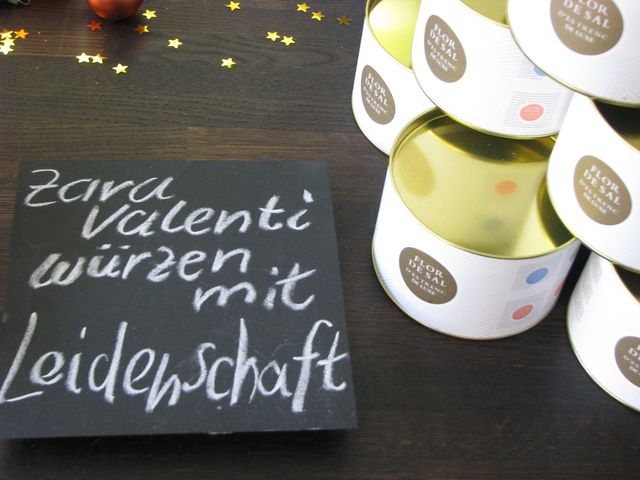 zara
Valenti
würzen
mit
Leidenschaft
FLOR
DE SAL
D'ES TRENC
DE LUXE
FLOR
DE SAL
D'ES TRENC
DE LUXE
DE SAL
D'ES TRENC
DE LUXE
FLOR
DE SAL
D'ES TRENC
DE LUXE
FLOR
DE SAL
D'ES TRENC
DE LUXE
FLOR
DE S